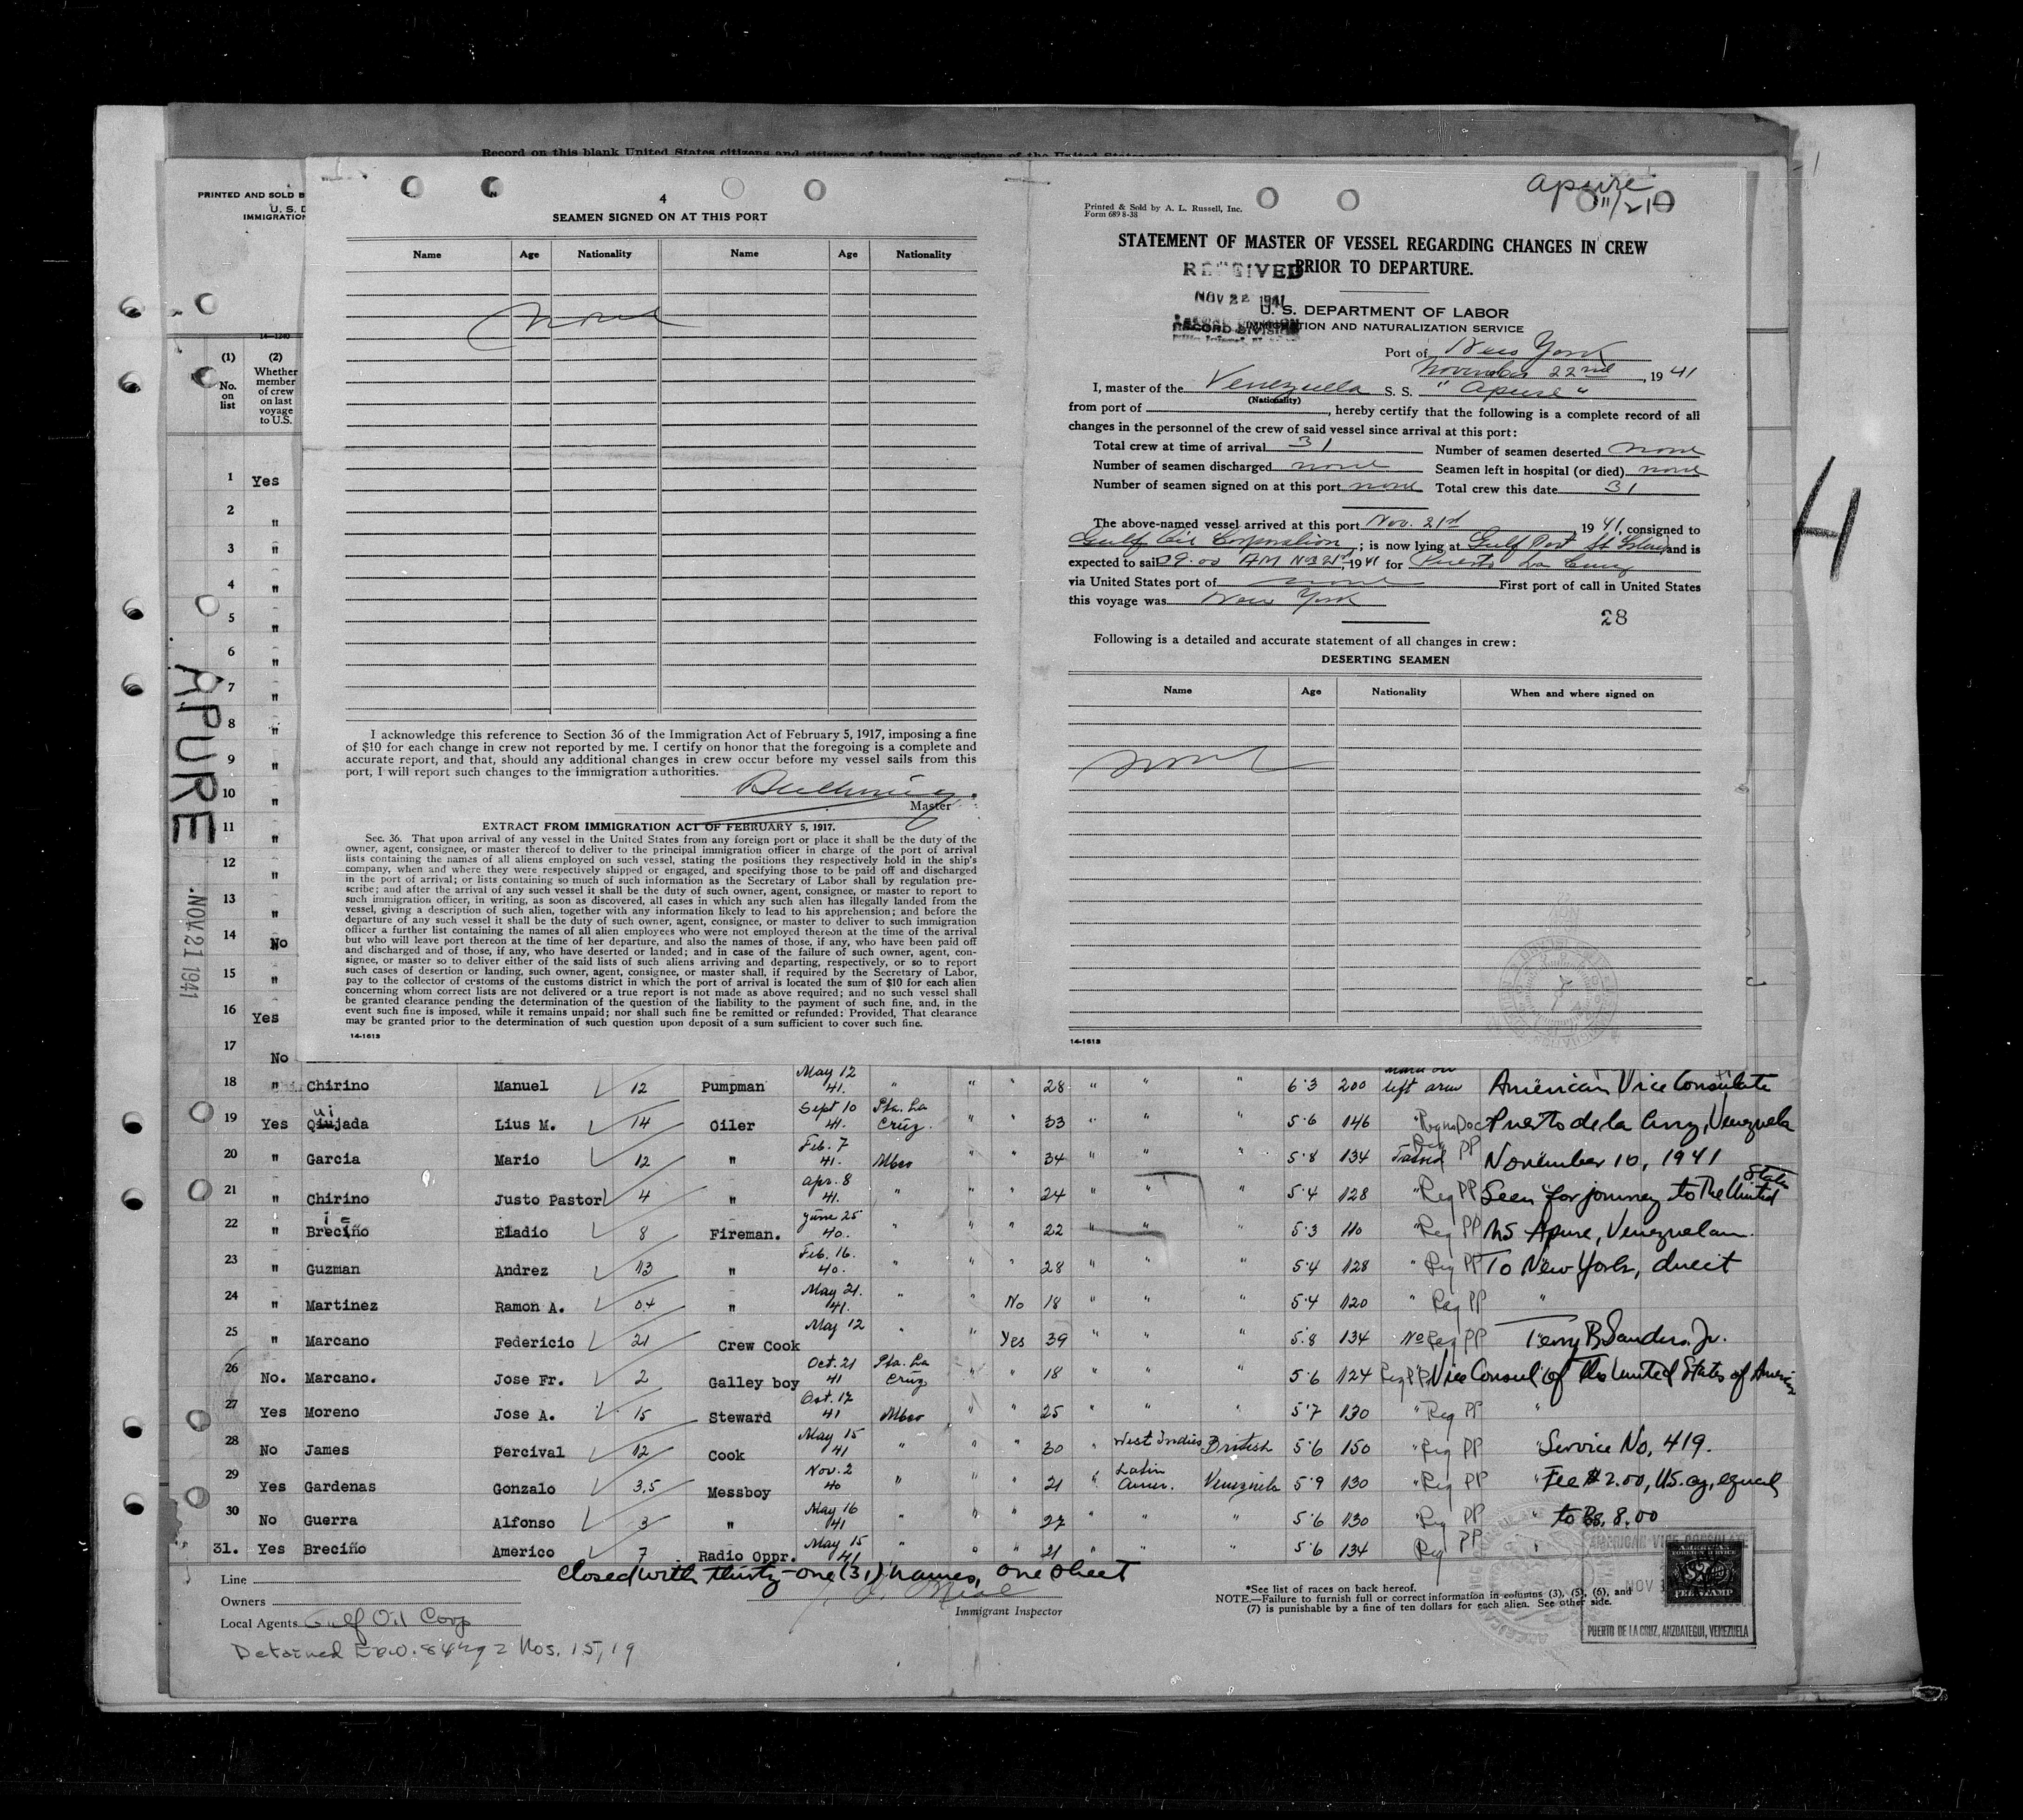 Record on this blank United States citizens and citizens of insular possessions of the United States
PRINTED AND SOLD B
U. S. D
IMMIGRATION
14—1240
(1)
No.
on
list
(2)
Whether
member
of crew
on last
voyage
to U.S.
1 Yes
2 "
3 "
4 "
5 "
6 "
7 "
8 "
9 "
10 "
11 "
12 "
13 "
14 No
15 "
16 Yes
17 No
APURE
NOV 21 1941
4
SEAMEN SIGNED ON AT THIS PORT
Name Age Nationality Name Age Nationality
none
I acknowledge this reference to Section 36 of the Immigration Act of February 5, 1917, imposing a fine
of $10 for each change in crew not reported by me. I certify on honor that the foregoing is a complete and
accurate report, and that, should any additional changes in crew occur before my vessel sails from this
port, I will report such changes to the immigration authorities.
Master
EXTRACT FROM IMMIGRATION ACT OF FEBRUARY 5, 1917.
Sec. 36. That upon arrival of any vessel in the United States from any foreign port or place it shall be the duty of the
owner, agent, consignee, or master thereof to deliver to the principal immigration officer in charge of the port of arrival
lists containing the names of all aliens employed on such vessel, stating the positions they respectively hold in the ship's
company, when and where they were respectively shipped or engaged, and specifying those to be paid off and discharged
in the port of arrival; or lists containing so much of such information as the Secretary of Labor shall by regulation pre-
scribe; and after the arrival of any such vessel it shall be the duty of such owner, agent, consignee, or master to report to
such immigration officer, in writing, as soon as discovered, all cases in which any such alien has illegally landed from the
vessel, giving a description of such alien, together with any information likely to lead to his apprehension; and before the
departure of any such vessel it shall be the duty of such owner, agent, consignee, or master to deliver to such immigration
officer a further list containing the names of all alien employees who were not employed thereon at the time of the arrival
but who will leave port thereon at the time of her departure, and also the names of those, if any, who have been paid off
and discharged and of those, if any, who have deserted or landed; and in case of the failure of such owner, agent, con-
signee, or master so to deliver either of the said lists of such aliens arriving and departing, respectively, or so to report
such cases of desertion or landing, such owner, agent, consignee, or master shall, if required by the Secretary of Labor,
pay to the collector of customs of the customs district in which the port of arrival is located the sum of $10 for each alien
concerning whom correct lists are not delivered or a true report is not made as above required; and no such vessel shall
be granted clearance pending the determination of the question of the liability to the payment of such fine, and, in the
event such fine is imposed, while it remains unpaid; nor shall such fine be remitted or refunded: Provided, That clearance
may be granted prior to the determination of such question upon deposit of a sum sufficient to cover such fine.
14-1613
Apure
11/21
Printed & Sold by A. L. Russell, Inc.
Form 689 8-38
STATEMENT OF MASTER OF VESSEL REGARDING CHANGES IN CREW
PRIOR TO DEPARTURE.
RECEIVED
NOV 22 1941
RECORD DIVISION
U. S. DEPARTMENT OF LABOR
IMMIGRATION AND NATURALIZATION SERVICE
Port of New York
November 22nd, 1941
I, master of the Venezuela S. S. "Apure"
(Nationality)
from port of , hereby certify that the following is a complete record of all
changes in the personnel of the crew of said vessel since arrival at this port:
Total crew at time of arrival 31 Number of seamen deserted none
Number of seamen discharged none Seamen left in hospital (or died) none
Number of seamen signed on at this port none Total crew this date 31
The above-named vessel arrived at this port Nov. 21st 1941, consigned to
Gulf Oil Corporation; is now lying at Gulf Port St Island and is
expected to sail 09.00 AM Nov 21st, 1941 for Puerto La Cruz
via United States port of none First port of call in United States
this voyage was New York
28
Following is a detailed and accurate statement of all changes in crew:
DESERTING SEAMEN
Name Age Nationality When and where signed on
none
14-1613
H
18 " Chirino Manuel 12 Pumpman May 12 41. " " " 28 " " " 6·3 200 mark on left arm American Vice Consulate
19 Yes Qiujada ui Lius M. 14 Oiler Sept 10 41. Pta. La Cruz. " " 33 " " " 5·6 146 " Reg no Doc Puerto de la Cruz, Venezuela
20 " Garcia Mario 12 " Feb. 7 41. Mbco " " 34 " " " 5·8 134 Tatood Reg PP November 10, 1941
21 " Chirino Justo Pastor 4 " Apr. 8 41. " " " 24 " " " 5·4 128 " Reg PP Seen for journey to The United States
22 " Breciño Eladio 8 Fireman. June 25 40. " " " 22 " " " 5·3 110 " Reg PP MS Apure, Venezuelan.
23 " Guzman Andrez 13 " Feb. 16. 40. " " " 28 " " " 5·4 128 " Reg PP To New York, direct
24 " Martinez Ramon A. 04 " May 21. 41. " " No 18 " " " 5·4 120 " Reg PP "
25 " Marcano Federicio 21 Crew Cook May 12 " " Yes 39 " " " 5·8 134 No Reg PP Terry B. Sanders. Jr.
26 No. Marcano. Jose Fr. 2 Galley boy Oct. 21 41 Pta. La Cruz " " 18 " " " 5·6 124 Reg PP Vice Consul of The United States of America
27 Yes Moreno Jose A. 15 Steward Oct. 17 41 Mbco " " 25 " " " 5·7 130 " Reg PP "
28 No James Percival 12 Cook May 15 41 " " " 30 " West Indies British 5·6 150 " Reg PP Service No, 419.
29 Yes Gardenas Gonzalo 3.5 Messboy Nov. 2 40 " " " 21 " Latin Amer. Venezuela 5·9 130 " Reg PP Fee $2.00, US. cy, equal
30 No Guerra Alfonso 3 " May 16 41 " " " 27 " " " 5·6 130 " Reg PP to Bs. 8.00
31. Yes Breciño Americo 7 Radio Oppr. May 15 41 " " " 21 " " " 5·6 134 Reg PP
Closed with thirty-one (31) names, one sheet
Line
Owners
Local Agents Gulf Oil Corp
Immigrant Inspector
*See list of races on back hereof.
NOTE.—Failure to furnish full or correct information in columns (3), (5), (6), and
(7) is punishable by a fine of ten dollars for each alien. See other side.
AMERICAN VICE CONSULATE
AMERICAN
FOREIGN SERVICE
$2
FEE STAMP
NOV
PUERTO DE LA CRUZ, ANZOATEGUI, VENEZUELA
Detained Nos. 15, 19